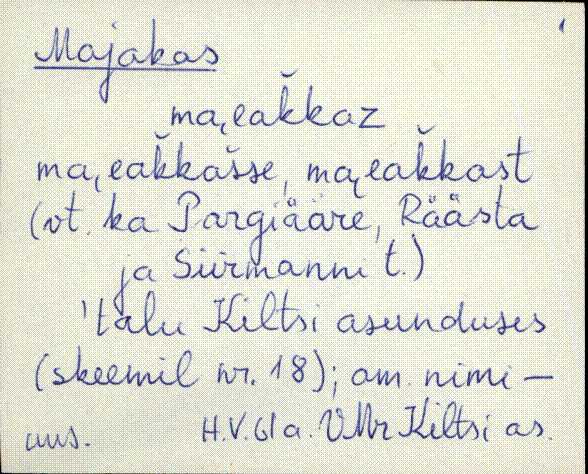 Majakas
ma,eak̆kaz
ma,eak̆kašse, ma,eak̆kast
(vt. ka Pargiääre, Räästa
ja Siirmanni t.)
'talu Kiltsi asunduses
(skeemil nr. 18); om. nimi —
uus. H.V. 61 a. VMr Kiltsi as.